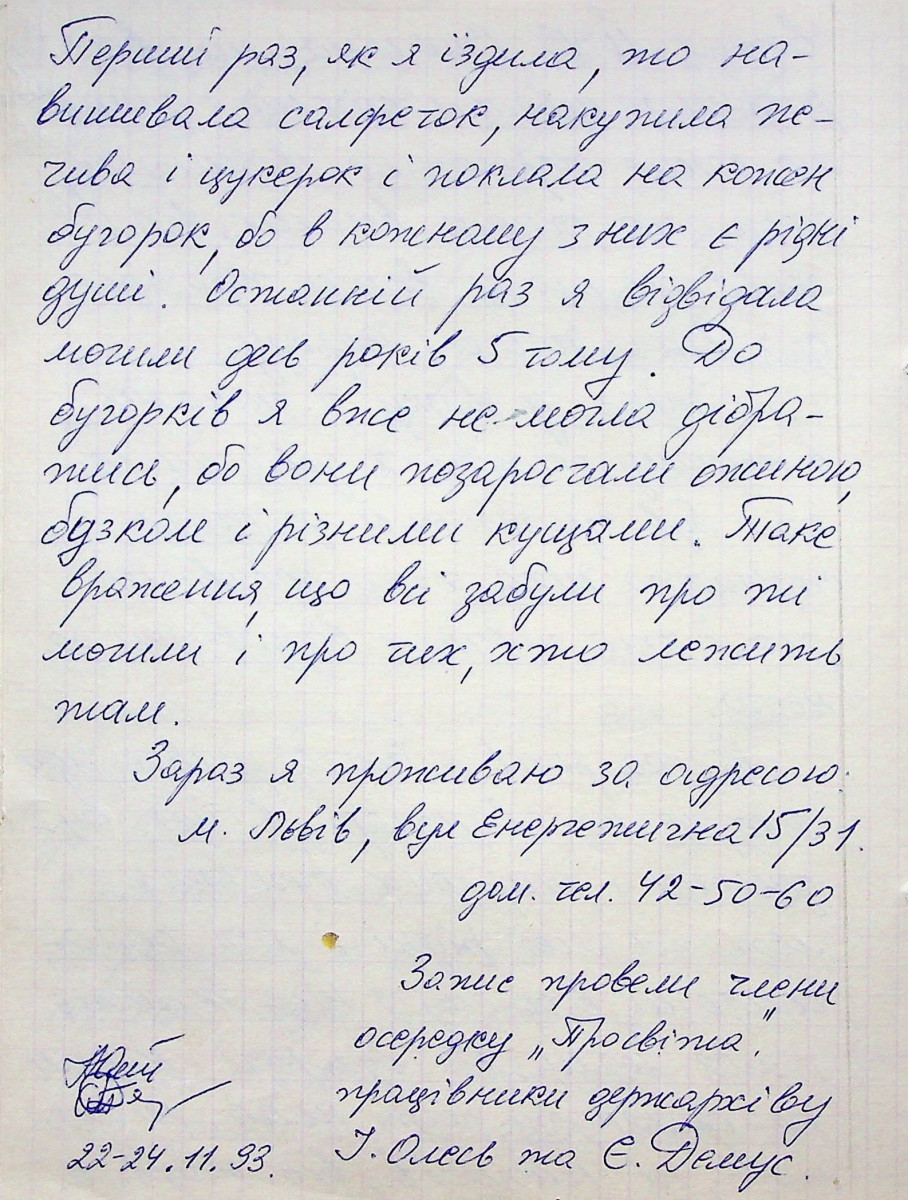 Перший раз, як я їздила, то на-
вишивала салфеток, накупила пе-
чива і цукерок і поклала на кожен
бугорок, бо в кожному з них є рідні
душі. Останній раз я відвідала
могили десь років 5 тому. До
бугорків я вже не могла дібра-
тись, бо вони позаростали ожиною,
бузком і різними кущами. Таке
враження, що всі забули про ті
могили і про тих, хто лежить
там.
Зараз я проживаю за адресою:
м. Львів, вул Енергетична 15/31.
дом. тел. 42-50-60
Запис провели члени
осередку „Просвіта",
працівники держархіву
І. Олесь та Є. Демус.
22-24.11.93.